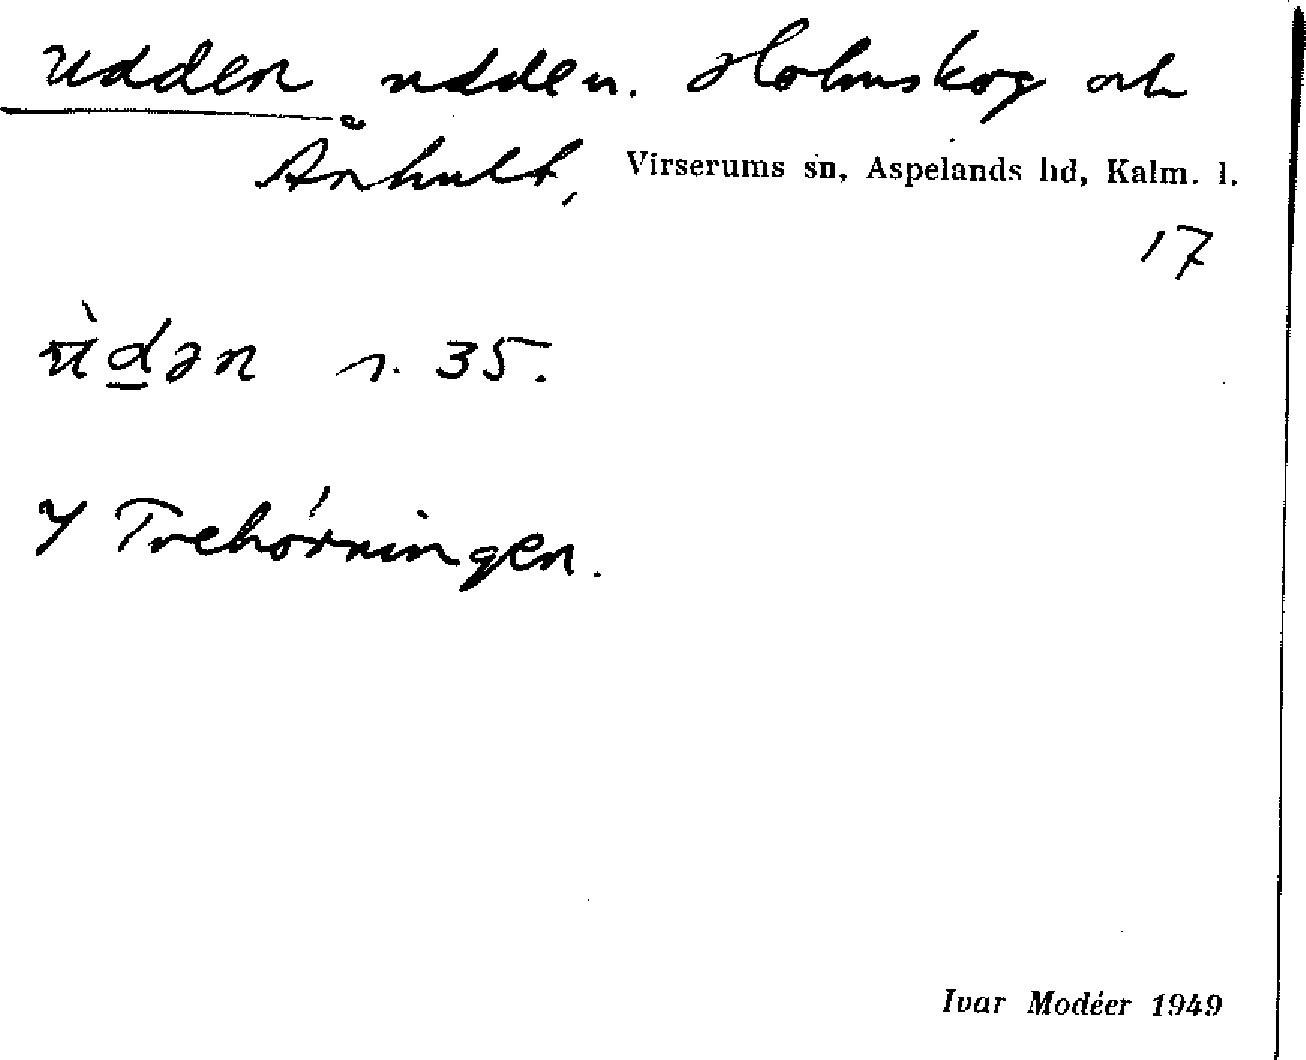 Udden udden. Holmskog och
Ånhult, Virserums sn, Aspelands hd, Kalm. l.
17
ùdən s. 35.
I Trehörningen.
Ivar Modéer 1949